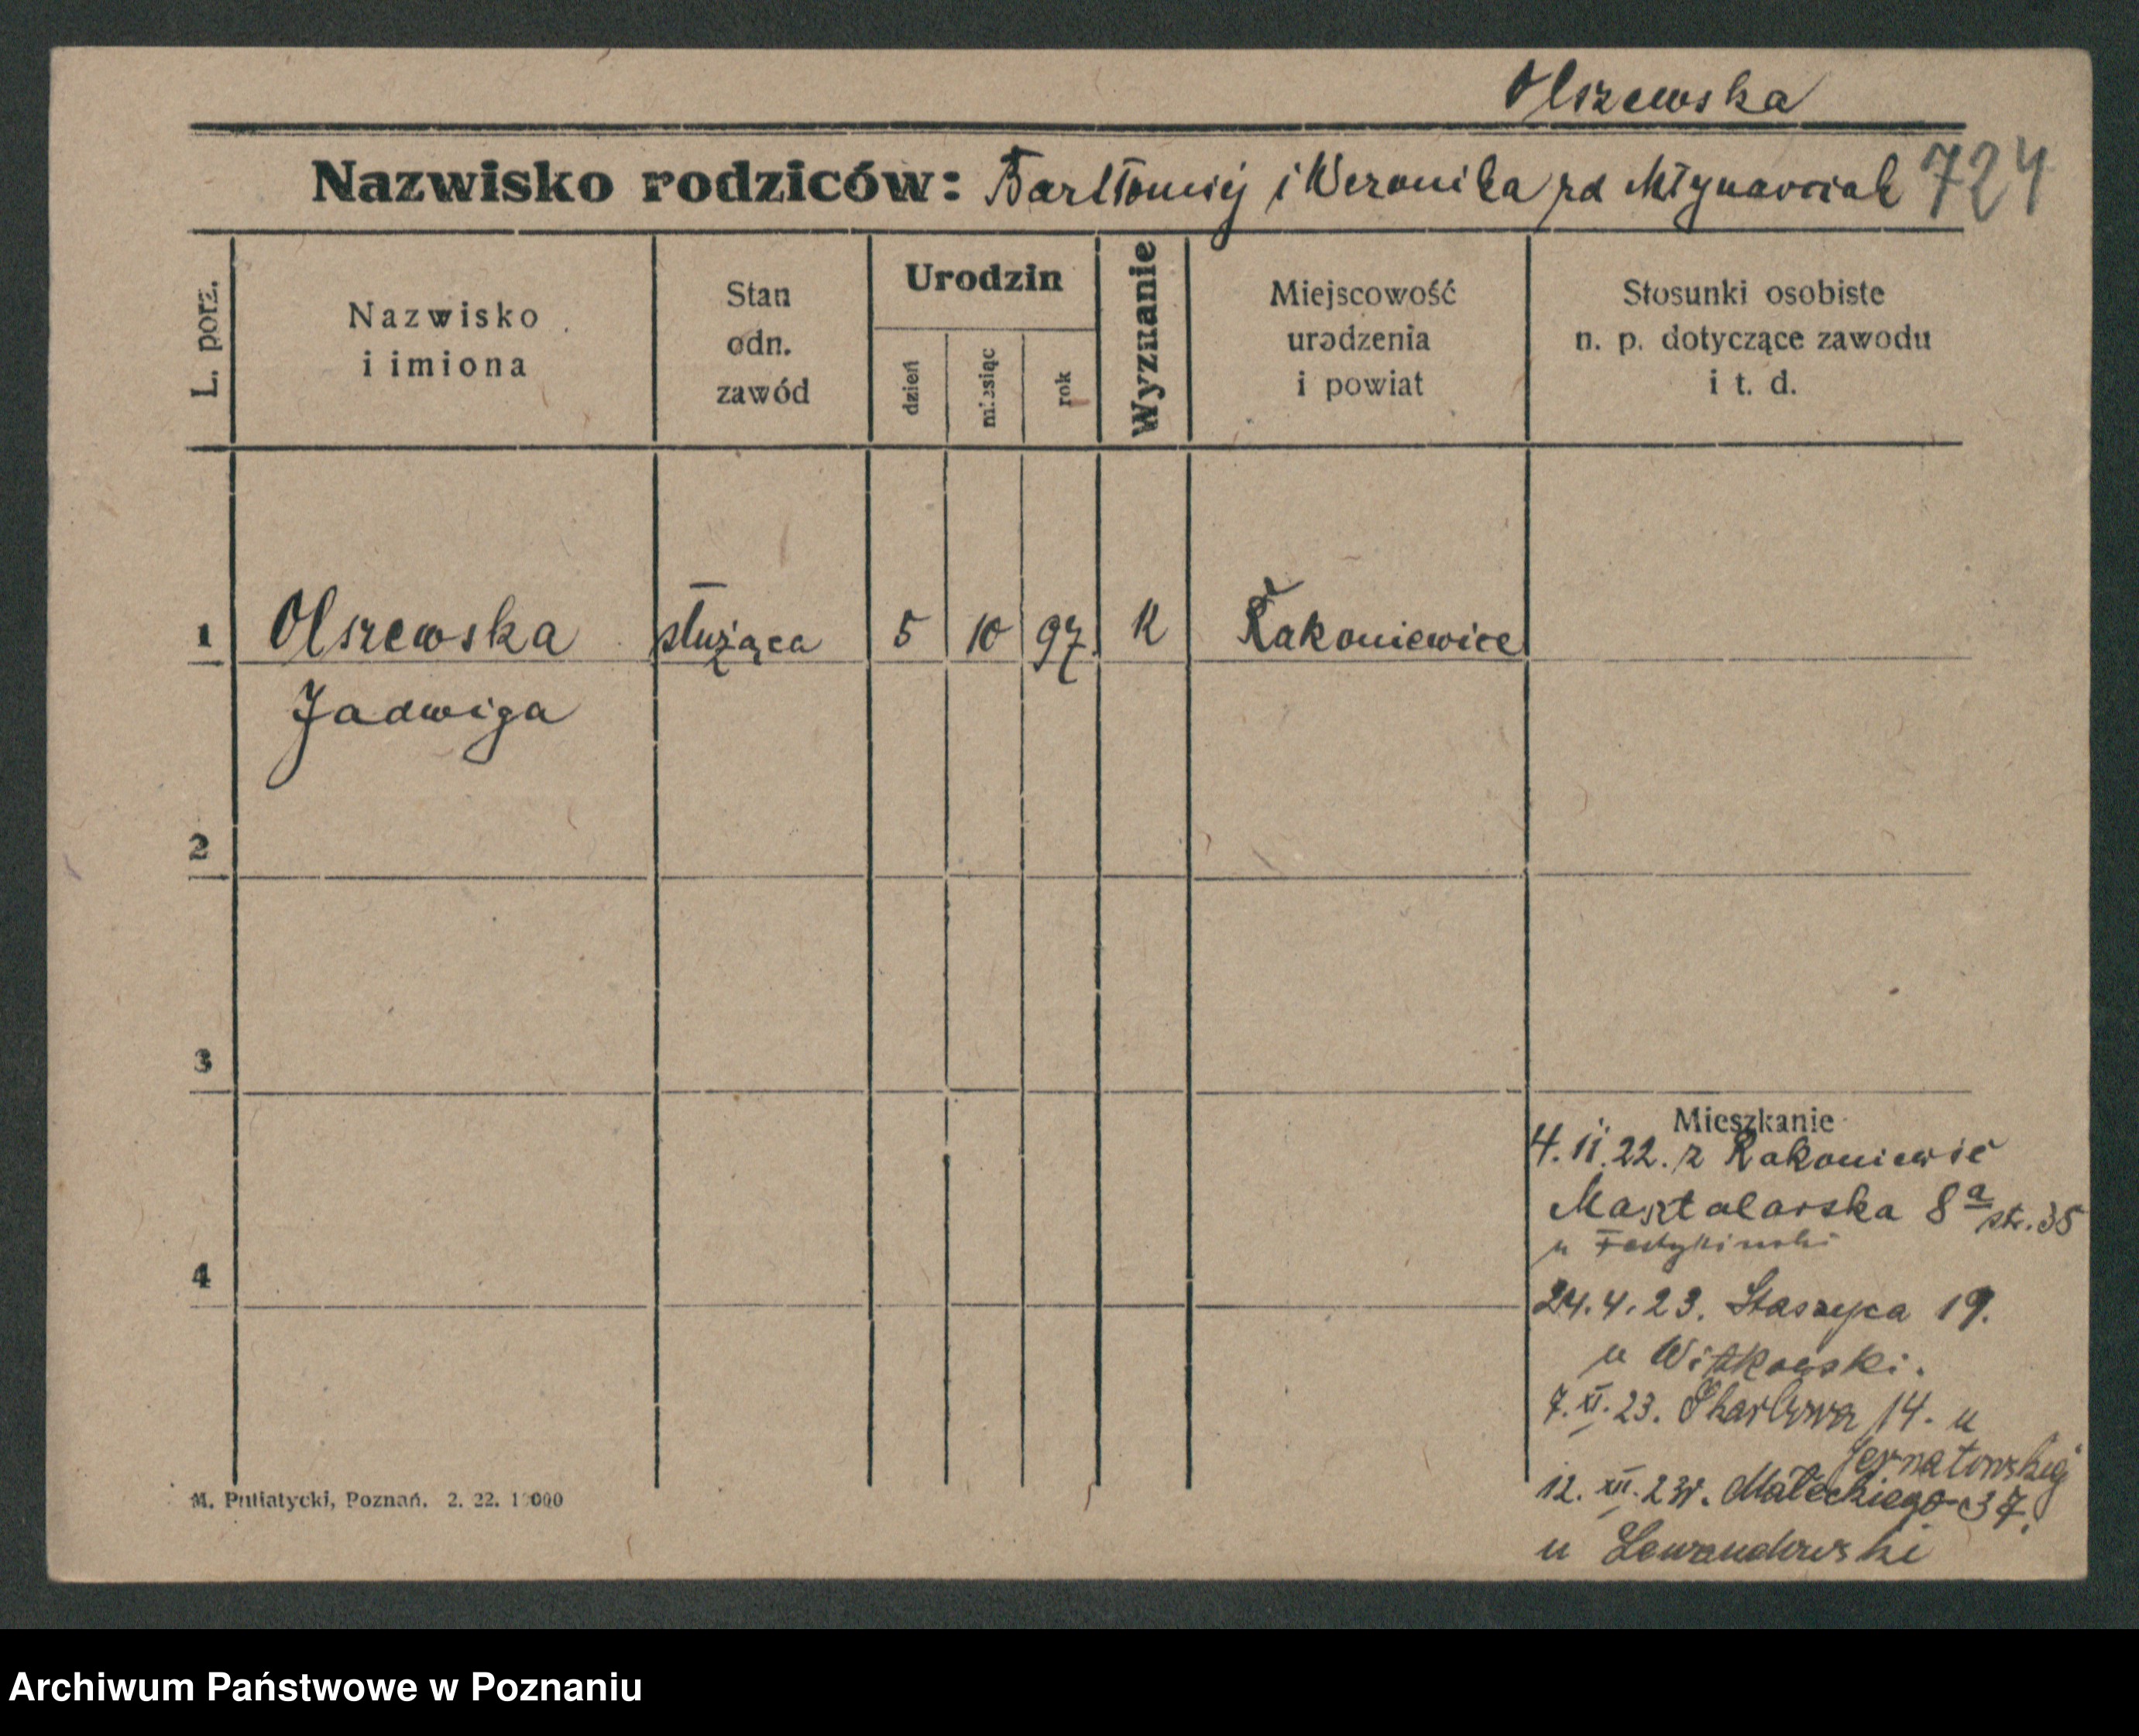 Olszewska
Nazwisko rodziców: Bartłomiej i Weronika rd Młynarciak 724
L. porz.
Nazwisko
i imiona
Stan
odn.
zawód
Urodzin
dzień
miesiąc
rok
Wyznanie
Miejscowość
urodzenia
i powiat
Stosunki osobiste
n. p. dotyczące zawodu
i t. d.
1 Olszewska służąca 5 10 97. K Rakoniewice
Jadwiga
2
3
4
Mieszkanie
4. 11. 22. z Rakoniewic
Masztalarska 8a str. 35
u
24. 4. 23. Staszyca 19.
u Witkowski.
7. XI. 23. 14. u
12. XII. 23r. Małeckiego 37.
u Lewandowski
M. Putiatycki, Poznań. 2. 22. 10000
Archiwum Państwowe w Poznaniu